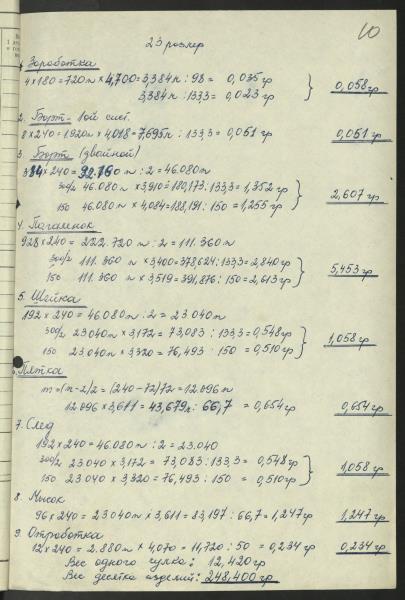 10
23 размер
1. Заработка
4 × 180 = 720 п × 4,700 = 3,384 п : 98 = 0,035 гр
3,384 п : 133,3 = 0,023 гр
0,058 гр
2. Борт - 1ой сист.
8 × 240 = 1920 п × 4,018 = 7,695 п : 133,3 = 0,051 гр
0,051 гр
3. Борт (двойной)
384 × 240 = 92.160 п : 2 = 46.080 п
300/2 46.080 п × 3,910 = 180,173 : 133,3 = 1,352 гр
150 46.080 п × 4,084 = 188,191 : 150 = 1,255 гр
2,607 гр
4. Паголенок
928 × 240 = 222.720 п : 2 = 111.360 п
300/2 111.360 п × 3,400 = 378,624 : 133,3 = 2,840 гр
150 111.360 п × 3,519 = 391,876 : 150 = 2,613 гр
5,453 гр
5. Шейка
192 × 240 = 46.080 п : 2 = 23.040 п
300/2 23.040 п × 3,172 = 73,083 : 133,3 = 0,548 гр
150 23.040 п × 3,320 = 76,493 : 150 = 0,510 гр
1,058 гр
Пятка
m = (n - 2)2 = (240 - 72)72 = 12.096 п
12.096 × 3,611 = 43,679 п : 66,7 = 0,654 гр
0,654 гр
7. След
192 × 240 = 46.080 п : 2 = 23.040
300/2 23.040 × 3,172 = 73,083 : 133,3 = 0,548 гр
150 23.040 × 3,320 = 76,493 : 150 = 0,510 гр
1,058 гр
8. Мысок
96 × 240 = 23.040 п × 3,611 = 83,197 : 66,7 = 1,247 гр
1,247 гр
9. Отработка
12 × 240 = 2.880 п × 4,070 = 11,720 : 50 = 0,234 гр
0,234 гр
Вес одного чулка: 12,420 гр
Вес десятка изделий: 248,400 гр